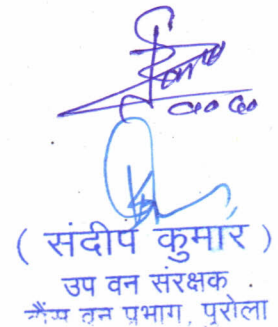 ( संदीप कुमार )
उप वन संरक्षक
टौंस वन प्रभाग, पुरोला